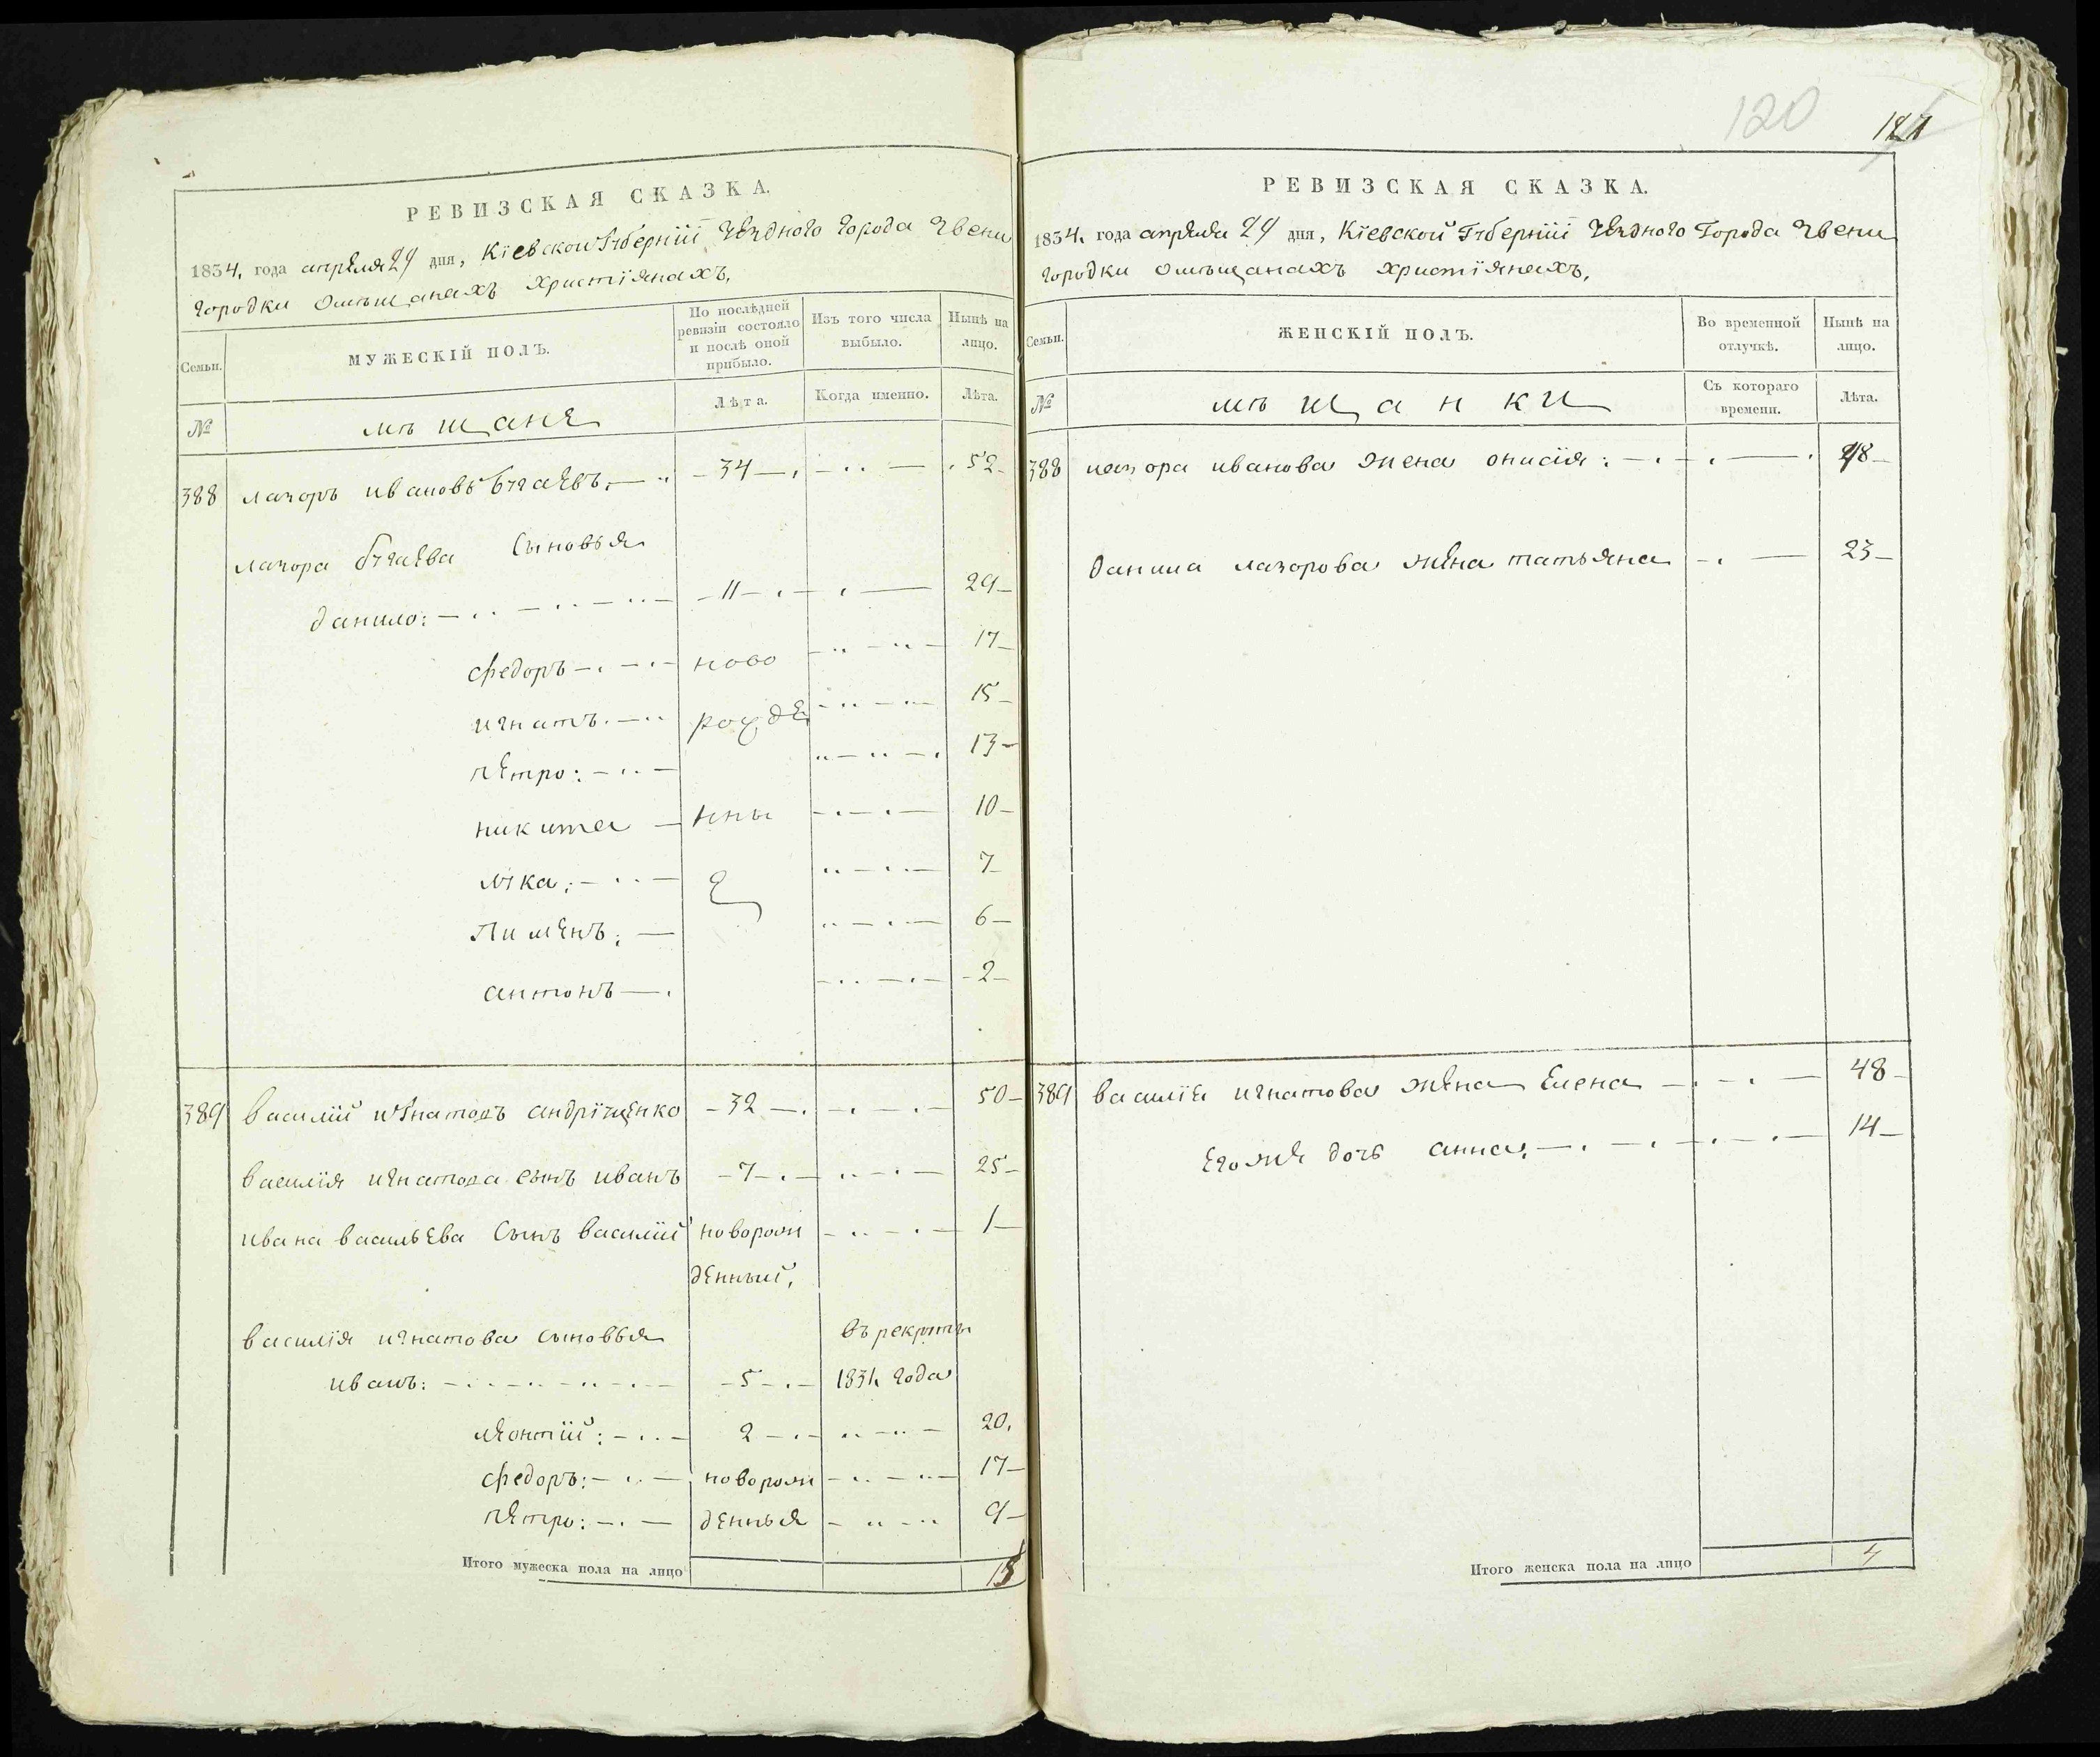 РЕВИЗСКАЯ СКАЗКА.
1834. года апреля 24 дня, Кіевской Губерніи Уездного Города Звени
городки омещанахъ христіянахъ,
Семьи.
МУЖЕСКІЙ ПОЛЪ.
По послѣдней ревизіи состояло и послѣ оной прибыло.
Изъ того числа выбыло.
Нынѣ на лицо.
№
мещане
Лѣта.
Когда именно.
Лѣта.
388 лазоръ ивановъ бугаевъ 34 52
лазора бугаева сыновья
данило: 11 29
федоръ ново 17
игнатъ рожде 15
петро: 13
никита нны 10
лука; е 7
Пименъ; 6
антонъ 2
389 василій игнатовъ андріущенко 32 50
василія игнатова сынъ иванъ 7 25
ивана васильева сынъ василій новорож 1
денный,
василія игнатова сыновья въ рекруты
иванъ: 5 1831 года
леонтій: 2 20,
федоръ: новорож 17
петро: денные 9
Итого мужеска пола на лицо 15
120
121
РЕВИЗСКАЯ СКАЗКА.
1834. года апреля 24 дня, Кіевской Губерніи Уездного Города Звени
городки омещанахъ христіянахъ,
Семьи.
ЖЕНСКІЙ ПОЛЪ.
Во временной отлучкѣ.
Нынѣ на лицо.
№
мещанки
Съ котораго времени.
Лѣта.
388 лазора иванова жена онисія: 48
данила лазорова жена татьяна 23
389 василія игнатова жена Елена 48
Егоже дочь анна, 14
Итого женска пола на лицо 4